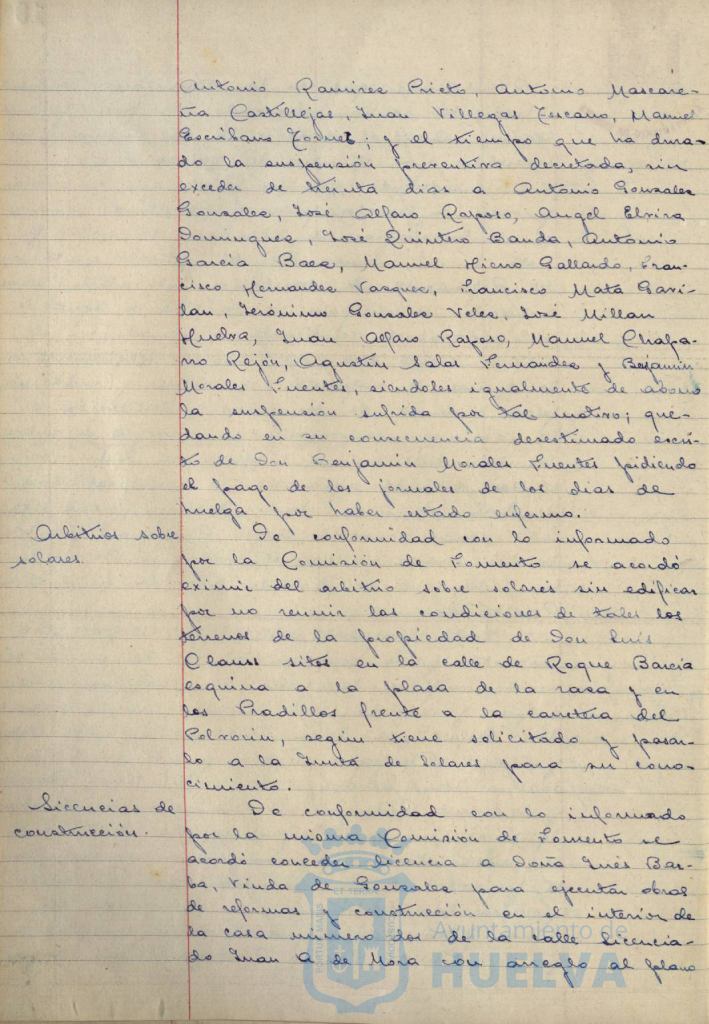 Antonio Ramirez Prieto, Antonio Mascare-
ña Castillejas, Juan Villegas Toscano, Manuel
Escribano Torres; y el tiempo que ha dura-
do la suspensión preventiva decretada, sin
exceder de treinta dias a Antonio Gonzalez
Gonzalez, José Alfaro Raposo, Angel Elvira
Dominguez, José Quintero Banda, Antonio
Garcia Baez, Manuel Hierro Gallardo, Fran-
cisco Hernandez Vazquez, Francisco Mata Gavi-
lan, Jerónimo Gonzalez Velez, José Millan
Huelva, Juan Alfaro Raposo, Manuel Chapa-
rro Rejón, Agustin Salas Fernandez y Benjamin
Morales Fuentes, siendoles igualmente de abono
la suspensión sufrida por tal motivo; que-
dando en su consecuencia desestimado escri-
to de Don Benjamin Morales Fuentes pidiendo
el pago de los jornales de los dias de
huelga por haber estado enfermo.
Arbitrios sobre
solares.
De conformidad con lo informado
por la Comisión de Fomento se acordó
eximir del arbitrio sobre solares sin edificar
por no reunir las condiciones de tales los
terrenos de la propiedad de Don Luis
Clauss sitos en la calle de Roque Barcia
esquina a la plaza de la rasa y en
los Pradillos frente a la carretera del
Polvorin, según tiene solicitado y pasar-
lo a la Junta de Solares para su cono-
cimiento.
Licencias de
construcción.
De conformidad con lo informado
por la misma Comisión de Fomento se
acordó conceder licencia a Doña Inés Bar-
ba, Viuda de Gonzalez para ejecutar obras
de reformas y construcción en el interior de
la casa número dos de la calle Licencia-
do Juan A de Mora con arreglo al plano
Ayuntamiento de
HUELVA